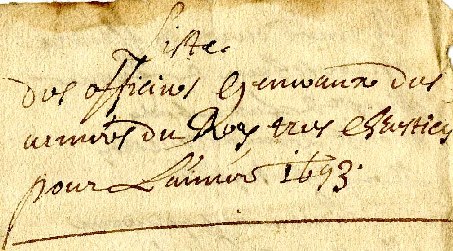 Liste
des officiers generaux des
armées du Roy tres Chrestien
pour L'année 1693.